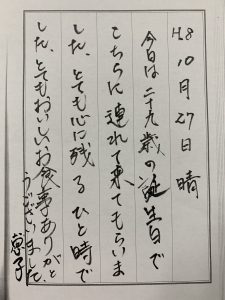 H18 10月27日 晴
今日は二十九歳の誕生日で
こちらに連れて来てもらいま
した。とても心に残るひと時で
した。とてもおいしいお食事ありがと
うございました。
恵子